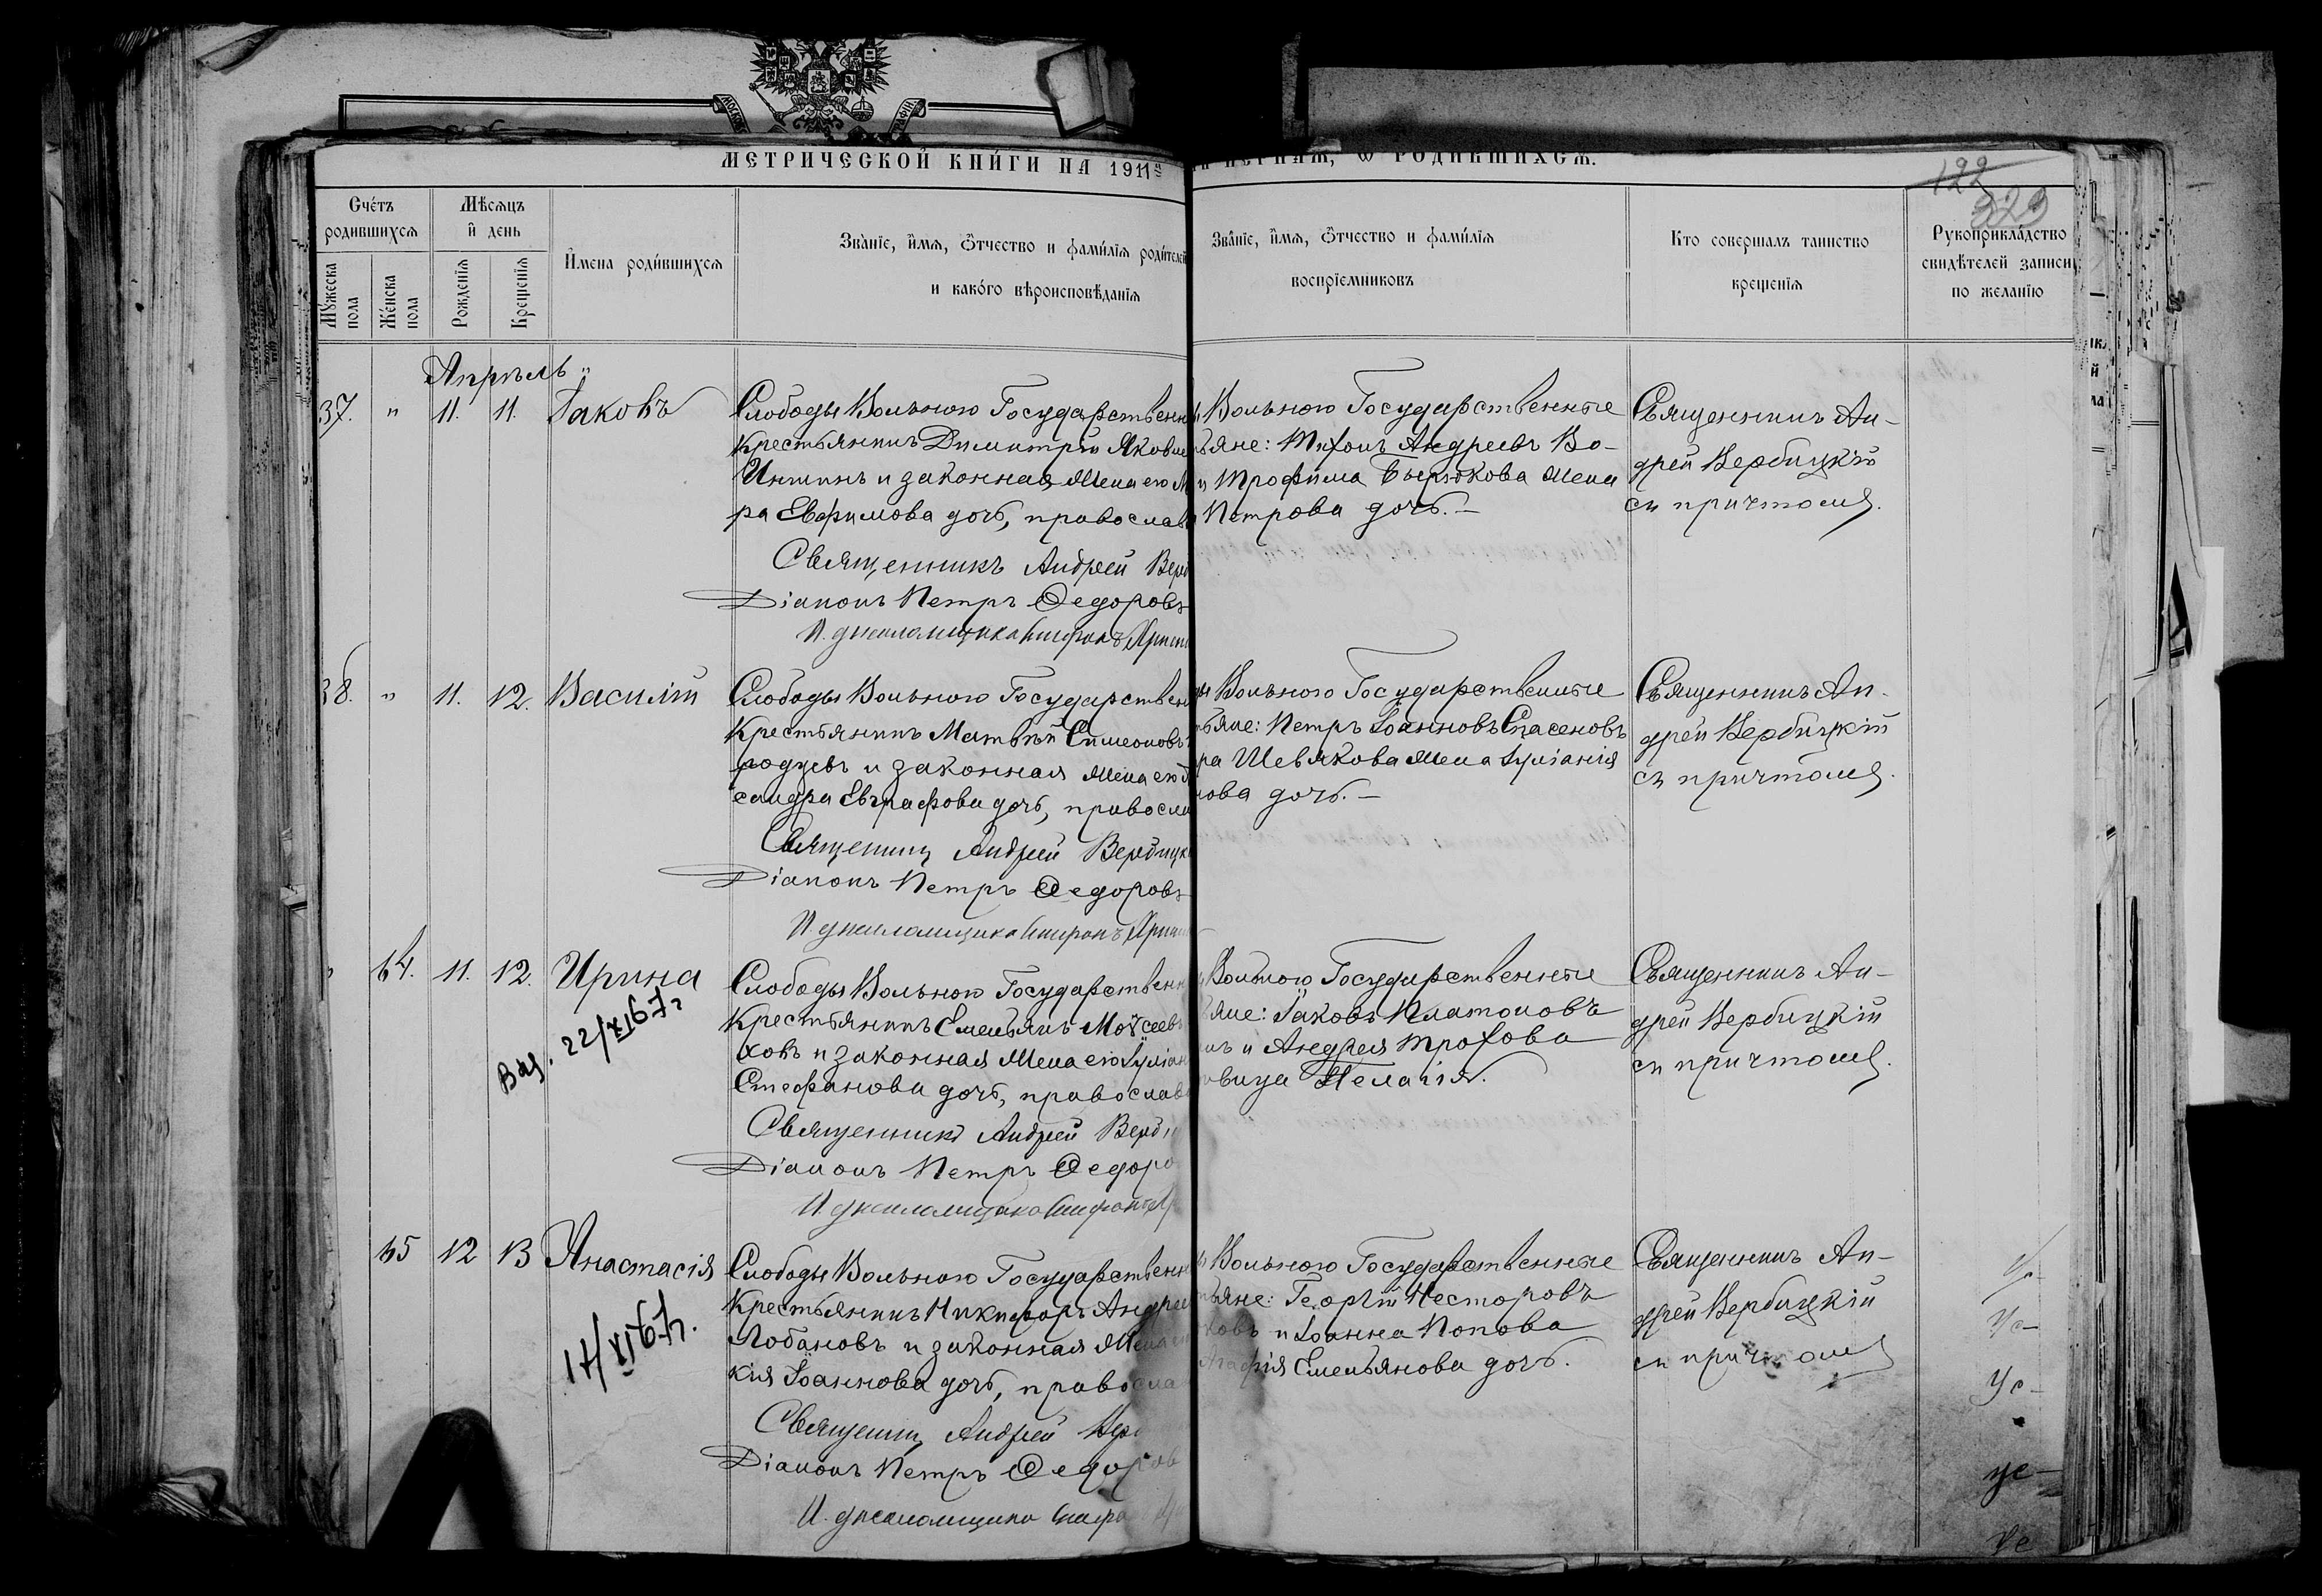 МЕТРИЧЕСКОЙ КНИГИ НА 1911
РОДИВШИХСЯ.
122
329
Счетъ родившихся
Мѣсяцъ и день
Имена родившихся
Званіе, имя, отчество и фамилія родителей
и какого вѣроисповѣданія
Званіе, имя, отчество и фамилія
воспріемниковъ
Кто совершалъ таинство
крещенія
Рукоприкладство
свидѣтелей записи
по желанію
Мужеска пола
Женска пола
Рожденія
Крещенія
Апрѣль
37. " 11. 11. Іаковъ
Слободы Вольного Государственн
крестьянинъ Димитрій Яковле
и законная жена его М
ра Евфимова дочь, православ
Священникъ Андрей Верб
Діаконъ Петръ Ѳедоровъ
И. д. псаломщика
Вольного Государственные
яне: Тихонъ Андреевъ Во-
и Трофима Бирюкова жена
Петрова дочь. —
Священникъ Ан-
дрей Вербицкій
съ причтомъ.
38. " 11. 12. Василій
Слободы Вольного Государствен
крестьянинъ Матвѣй Симеоновъ
родцевъ и законная жена его
сандра Евграфова дочь, правосла
Священникъ Андрей Вербицк
Діаконъ Петръ Ѳедоровъ
И. д. псаломщика
Вольного Государственные
яне: Петръ Іоанновъ Спасеновъ
ра Шевякова жена Іуліанія
нова дочь. —
Священникъ Ан-
дрей Вербицкій
съ причтомъ.
64. 11. 12. Ирина
Выд. 22/XI 67г
Слободы Вольного Государственн
крестьянинъ Емельянъ Моѵсеевъ
ховъ и законная жена его Іуліан
Стефанова дочь, православ
Священникъ Андрей Верб
Діаконъ Петръ Ѳедоро
И. д. псаломщика
Вольного Государственные
яне: Іаковъ Платоновъ
нъ и Андрея Трофова
овица Пелагія.
Священникъ Ан-
дрей Вербицкій
съ причтомъ.
65 12 13 Анастасія
14/XI 67г.
Слободы Вольного Государственн
крестьянинъ Никифоръ Андрее
Лобановъ и законная жена
кія Іоаннова дочь, правосла
Священникъ Андрей Вер
Діаконъ Петръ Ѳедоров
И. д. псаломщика
Вольного Государственные
яне: Георгій Несторовъ
ковъ и Іоанна Попова
Агафія Емельянова дочь.
Священникъ Ан-
дрей Вербицкій
съ причтомъ
Ус-
Ус-
ус-